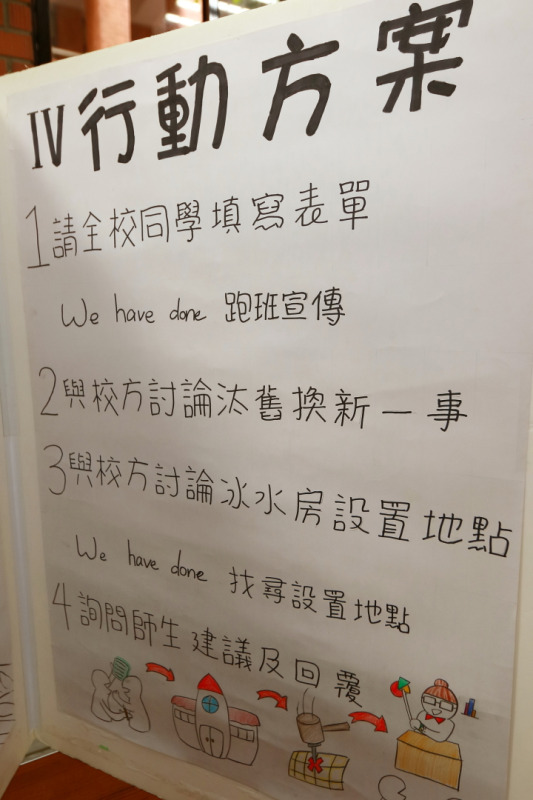 IV 行動方案
1 請全校同學填寫表單
We have done 跑班宣傳
2 與校方討論汰舊換新一事
3 與校方討論冰水房設置地點
We have done 找尋設置地點
4 詢問師生建議及回覆